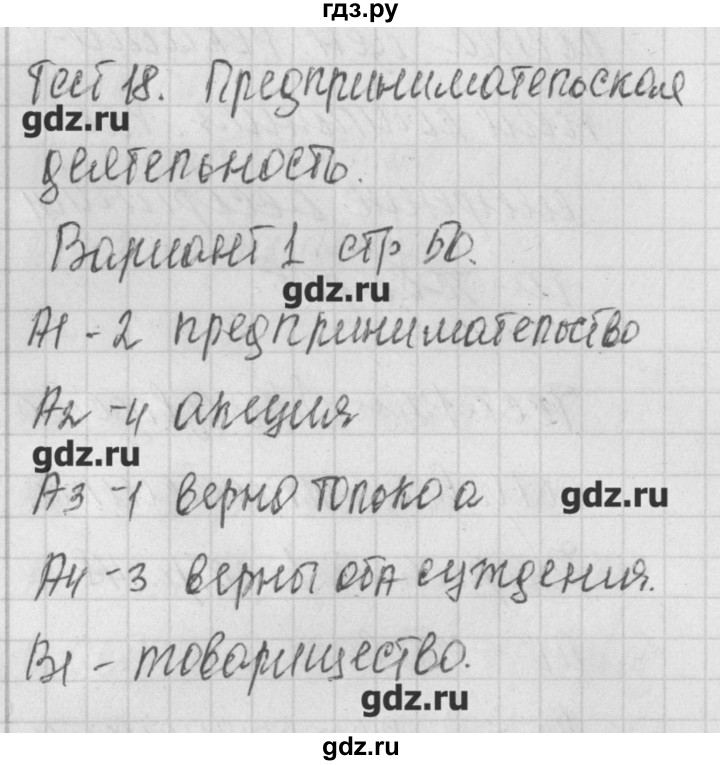 гдз.ру
Тест 18. Предпринимательская
gdz.ru
деятельность.
Вариант 1 стр 50.
gdz.ru
А1 - 2 предпринимательство
А2 - 4 акция
gdz.ru
А3 - 1 верно только а
gdz.ru
А4 - 3 верны оба суждения.
В1 - товарищество.
gdz.ru
gdz.ru